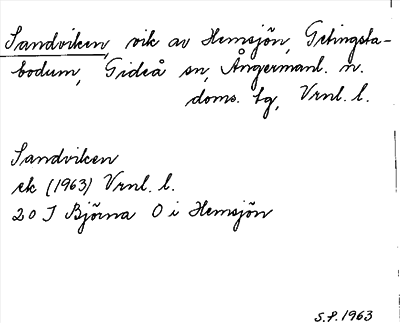 Sandviken, vik av Hemsjön, Getingsta-
bodum, Gideå sn, Ångermanl. n.
doms. tg, Vrnl. l.
Sandviken
ek (1963) Vrnl. l.
20 J Björna O i Hemsjön
S.P. 1963